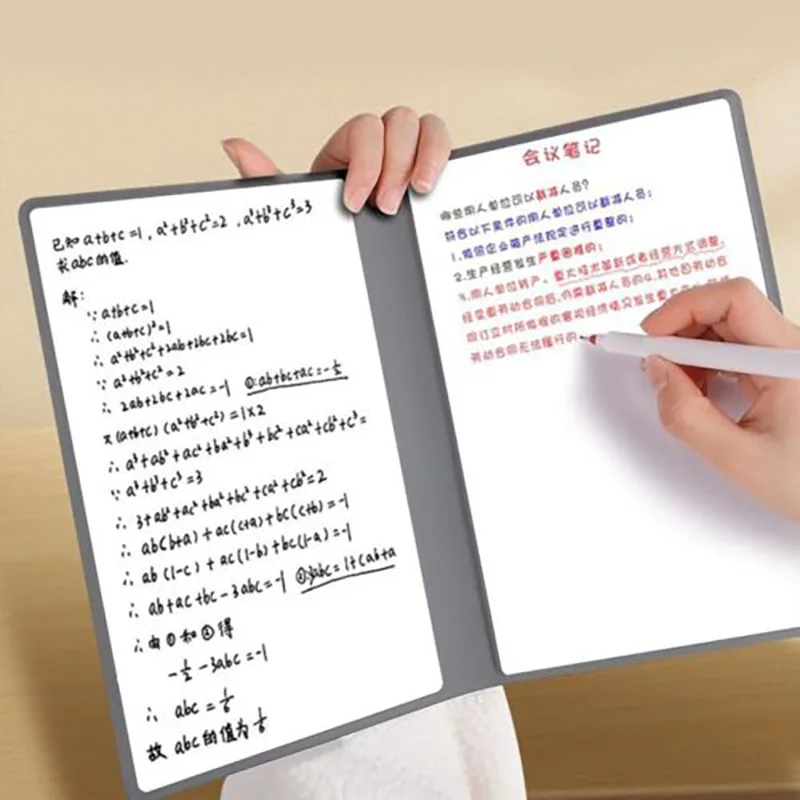 已知 a+b+c=1, a²+b²+c²=2, a³+b³+c³=3
求abc的值.
解:
∵ a+b+c=1
∴ (a+b+c)²=1
∴ a²+b²+c²+2ab+2bc+2bc=1
∵ a²+b²+c²=2
∴ 2ab+2bc+2ac=-1 ①:ab+bc+ac=-½
×(a+b+c)(a²+b²+c²)=1×2
∴ a³+ab²+ac²+ba²+b³+bc²+ca²+cb²+c³=
∵ a³+b³+c³=3
∴ 3+ab²+ac²+ba²+bc²+ca²+cb²=2
∴ ab(b+a)+ac(c+a)+bc(c+b)=-1
∴ ab(1-c)+ac(1-b)+bc(1-a)=-1
∴ ab+ac+bc-3abc=-1 ②:3abc=1+(ab+a
∴由①和②得
-½-3abc=-1
∴ abc=1/6
故 abc的值为1/6
会议笔记
哪些用人单位可以裁减人员?
符合以下条件的用人单位可以裁减人员:
1.依照企业破产法规定进行重整的;
2.生产经营发生严重困难的;
3.用人单位转产、重大技术革新或者经营方式调整,
经变更劳动合同后,仍需裁减人员的;4.其他因劳动合
同订立时所依据的客观经济情况发生重大
劳动合同无法履行的